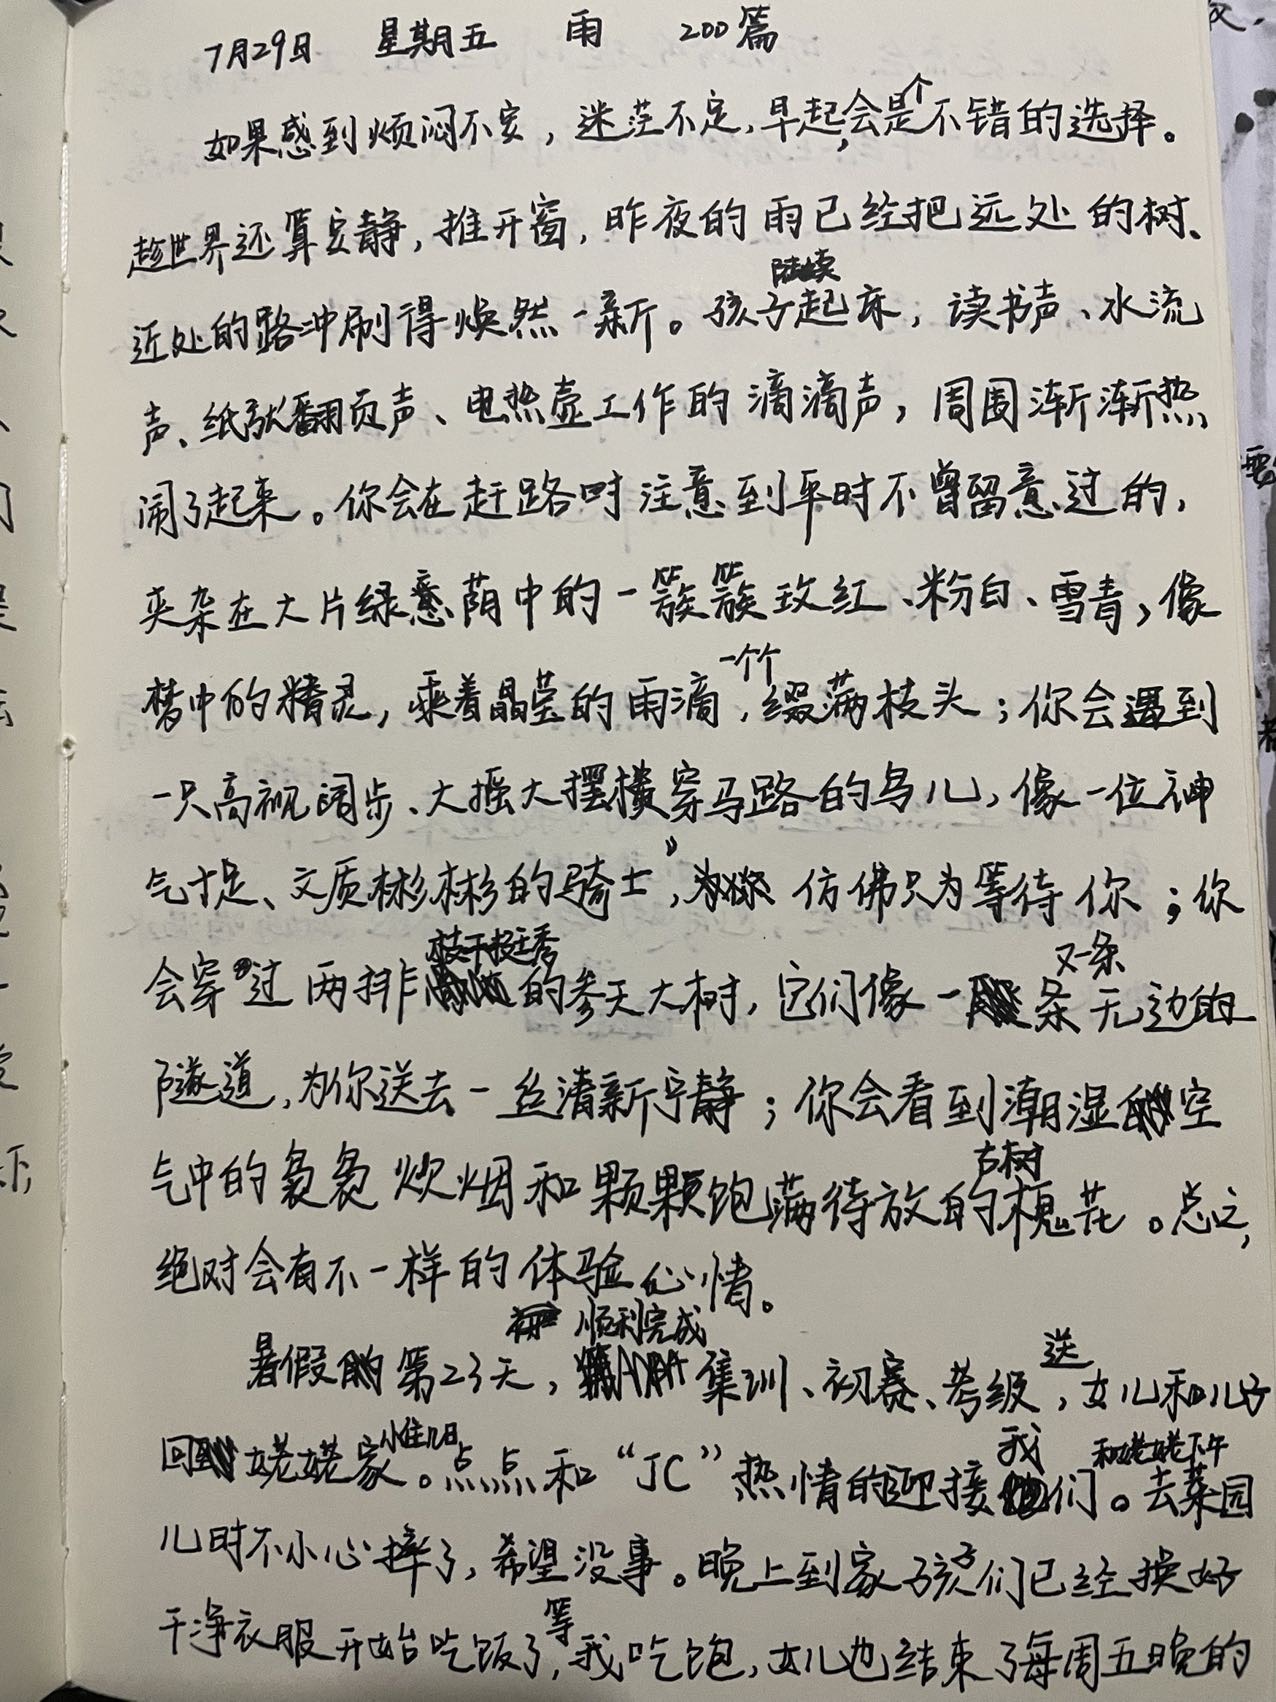 7月29日 星期五 雨 200篇
如果感到烦闷不安，迷茫不定，早起，会是个不错的选择。
趁世界还算安静，推开窗，昨夜的雨已经把远处的树、
近处的路冲刷得焕然一新。孩子陆续起床，读书声、水流
声、纸张翻页声、电热壶工作的滴滴声，周围渐渐热
闹了起来。你会在赶路时注意到平时不曾留意过的，
夹杂在大片绿荫中的一簇簇玫红、粉白、雪青，像
梦中的精灵，乘着晶莹的雨滴，一个个缀满枝头；你会遇到
一只高视阔步、大摇大摆横穿马路的鸟儿，像一位神
气十足、文质彬彬的骑士，仿佛只为等待你；你
会穿过两排枝干挺秀的参天大树，它们像一条又一条无边的
隧道，为你送去一丝清新宁静；你会看到潮湿空
气中的袅袅炊烟和颗颗饱满待放的古树槐花。总之，
绝对会有不一样的体验心情。
暑假第23天，顺利完成集训、初赛、考级，送女儿和儿子
回姥姥家小住几日。点点和“JC”热情的迎接我们。和姥姥下午去菜园
儿时不小心摔了，希望没事。晚上到家孩子们已经换好
干净衣服开始吃饭了，等我吃饱，女儿也结束了每周五晚的